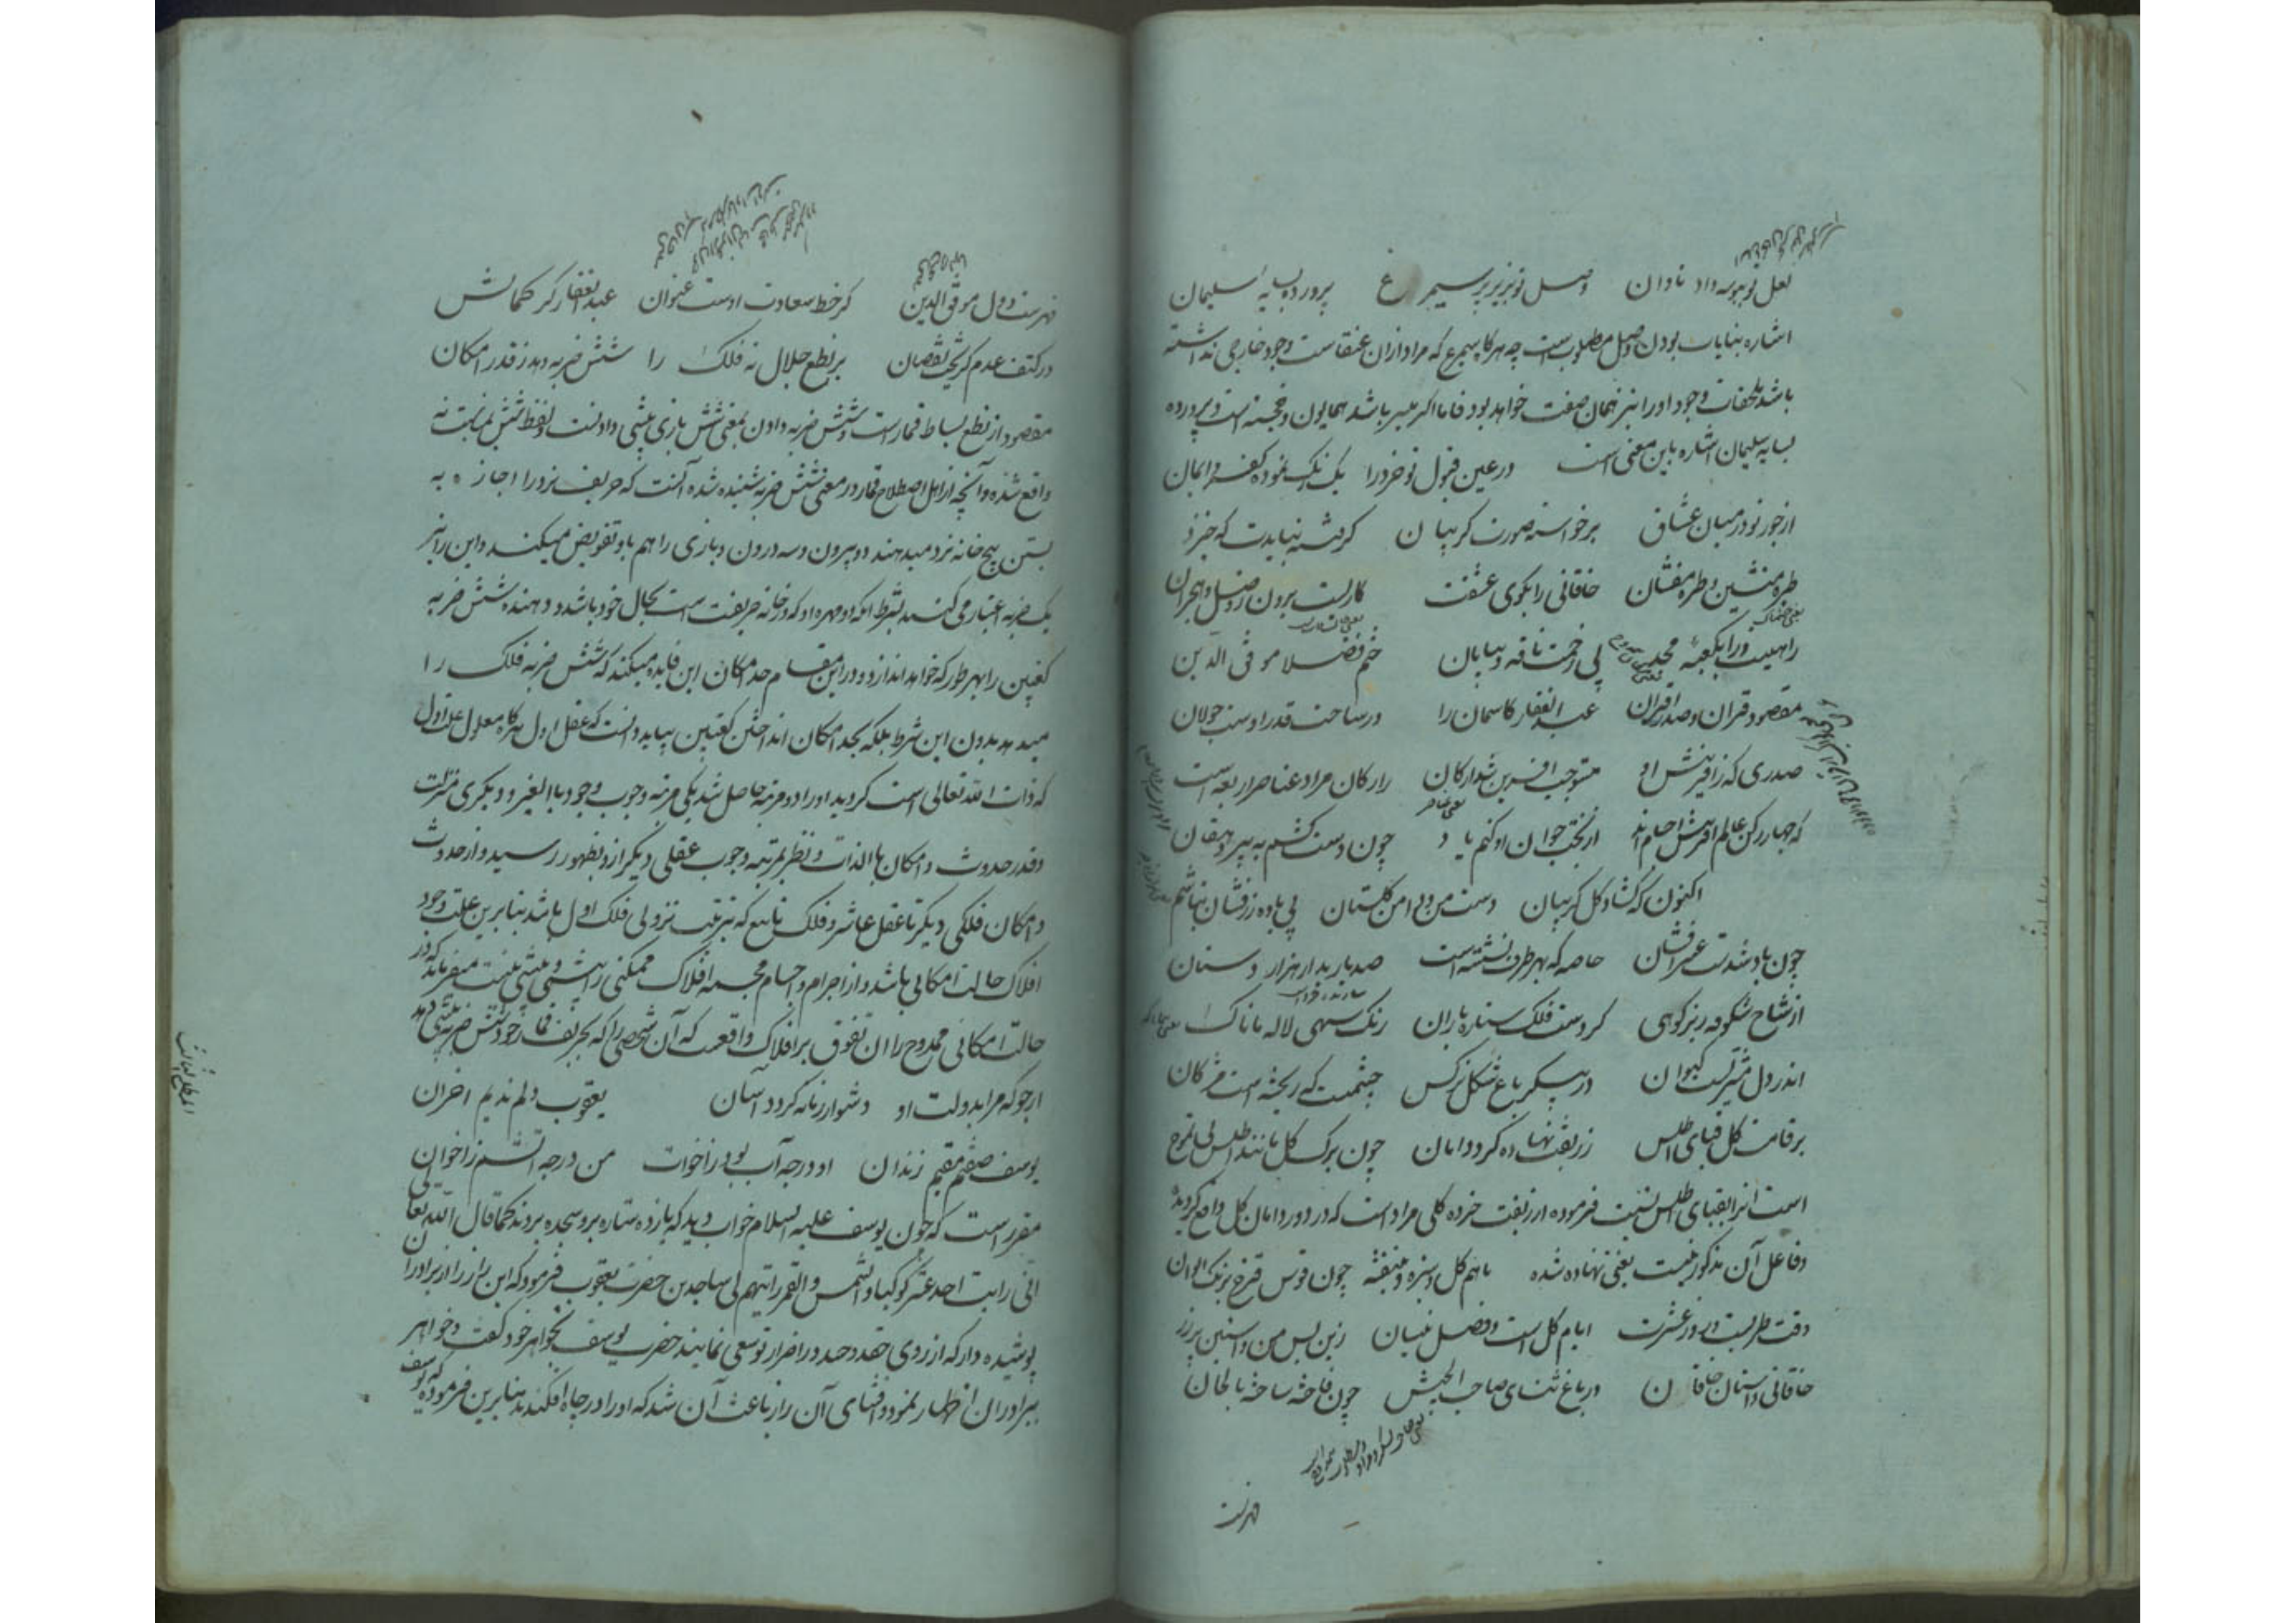 لعل تو ببوسه داد تاوان وصل تو بزیر پر سیمرغ پرورده بسایه سلیمان
اشاره بنایاب بودن وصل مطلوب است چه هرکا سیمرغ که مراد ازان عنقاست وجود خارجی نداشته
باشد ملحقات وجود او را نیز همان صفت خواهد بود فاما اکر میسر باشد همایون و خجسته است و پرورده
بسایه سلیمان اشاره باین معنی است در عین قبول تو خرد را یک رنک نموده کفر و ایمان
از جور تو در میان عشاق برخواسته صورت کریبان کر فتنه نبایدت که خیزد
طره منشین و طره مفشان خاقانی را بکوی عشقت کاریست برون ز وصل و هجران
راهیست ورا بکعبه مجد بی زحمت ناقه و بیابان ختم فضلا موفق الدین
مقصود قران و صدر اقران عبد الغفار کاسمان را در ساحت قدر اوست جولان
صدری که ز آفرینش او مستوجب آفرین شد ارکان را ارکان مراد عناصر اربعه است
که چهار رکن عالم آفرینش اجسام اند از بخت جوان او کنم یاد چون دست کشم به پیر دهقان
اکنون که کشاد کل کریبان دست من و دامن کلستان بی باده زرفشان نباشم
چون باد شدست عنبرافشان خاصه که بهر طرف نشسته است صد باربد از هزار دستان
از شاخ شکوفه ریز کوهی کردست فلک ستاره باران رنک سهی لاله تابناک
اندر دل مشتریست کیوان در پیکر باغ شکل نرکس چشمیست که ریخته است مژکان
بر قامت کل قبای اطلس زربفت نهاده کرد دامان چون برک کل مانند اطلس بی تموج
است انرا بقبای اطلس نسبت فرموده از زربفت خرده کلی مراد است که در دور دامان کل واقع کردیده
و فاعل آن مذکور نیست یعنی نهاده شده باهم کل و سبزه و بنفشه چون قوس قزح برنک الوان
وقت طربست و روز عشرت ایام کل است و فصل نیسان زین پس من و آستین پر زر
خاقانی و آستان خاقان در باغ ثنای صاحب الجیش چون فاخته ساخته بالحان
فهرست
فهرست دول موفق الدین کز خط سعادت اوست عنوان عبد الغفار کز کمالش
در کتف عدم کریخت نقصان بر نطع جلال نه فلک را شش ضربه دهد ز قدر امکان
مقصود از نطع بساط قمار است و شش ضربه دادن بمعنی شش بازی پیشی دادنست و لفظ شش بمناسبت نه
واقع شده و آنچه از اهل اصطلاح قمار در معنی شش ضربه شنیده شده آنست که حریف نرد را اجازه به
بستن پنج خانه نرد میدهند دو بیرون و سه درون و بازی را هم باو تفویض میکنند و این را نیز
یک ضربه اعتبار می کنند بشرط انکه دو مهره او که در خانه حریفست است بحال خود باشد و دهنده شش ضربه
کعبتین را بهر طور که خواهد اندازد و در این مقام حد امکان این فایده میکند که شش ضربه فلک را
میدهد بدون این شرط بلکه بحد امکان انداختن کعبتین بباید دانست که عقل اول هرکاه معلول علت اول
که ذات الله تعالی است کردید او را دو مرتبه حاصل شد یکی مرتبه وجوب وجود بالغیر و دیکری منزلت
و قدر حدوث و امکان بالذات و نظر بمرتبه وجوب عقلی دیکر ازو بظهور رسید و از حدوث
و امکان فلکی دیکر تا عقل عاشر و فلک تاسع که بترتیب نزولی فلک اول باشد بنابرین علت وجود
افلاک حالت امکانی باشد و از اجرام و اجسام مجسمه افلاک ممکنی را پیشی و بیشی نیست میفرماید که در
حالت امکانی ممدوح را ان تفوق بر افلاک واقعست که آن شخصی را که بحریف قمار خود شش ضربه پیشی دهد
ارجو که مرا بدولت او دشوار زمانه کردد آسان یعقوب دلم ندیم احزان
یوسف صفتم مقیم زندان او در چه آب بود ز اخوت من در چه آتشم ز اخوان
مقرر است که چون یوسف علیه السلام خواب دید که یازده ستاره برو سجده بردند کما قال الله تعالی
انی رایت احد عشر کوکبا و الشمس و القمر رایتهم لی ساجدین حضرت یعقوب فرمود که این راز را از برادران
پوشیده دار که از روی حقد و حسد در اضرار تو سعی نمایند حضرت یوسف بخواهر خود کفت و خواهر
ببرادران اظهار نمود و افشای آن راز باعث آن شد که او را در چاه افکندند بنابرین فرموده که یوسف